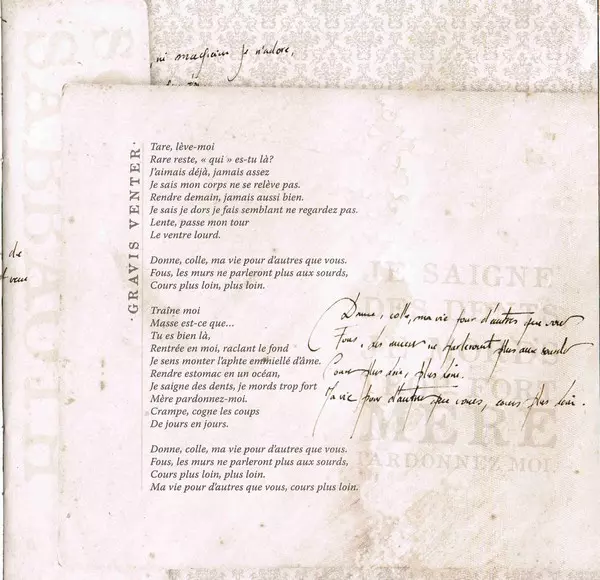 ni magicien je n'adore,
de
· GRAVIS VENTER ·
Tare, lève-moi
Rare reste, « qui » es-tu là?
J'aimais déjà, jamais assez
Je sais mon corps ne se relève pas.
Rendre demain, jamais aussi bien.
Je sais je dors je fais semblant ne regardez pas.
Lente, passe mon tour
Le ventre lourd.
Donne, colle, ma vie pour d'autres que vous.
Fous, les murs ne parleront plus aux sourds,
Cours plus loin, plus loin.
Traîne moi
Masse est-ce que...
Tu es bien là,
Rentrée en moi, raclant le fond
Je sens monter l'aphte emmiellé d'âme.
Rendre estomac en un océan,
Je saigne des dents, je mords trop fort
Mère pardonnez-moi.
Crampe, cogne les coups
De jours en jours.
Donne, colle, ma vie pour d'autres que vous.
Fous, les murs ne parleront plus aux sourds,
Cours plus loin, plus loin.
Ma vie pour d'autres que vous, cours plus loin.
JE SAIGNE
DES DENTS
FORT
MÈRE
PARDONNEZ MOI
Donne, colle, ma vie pour d'autres que vous
Fous, les murs ne parleront plus aux sourds
Cours plus loin, plus loin.
Ma vie pour d'autres que vous, cours plus loin.